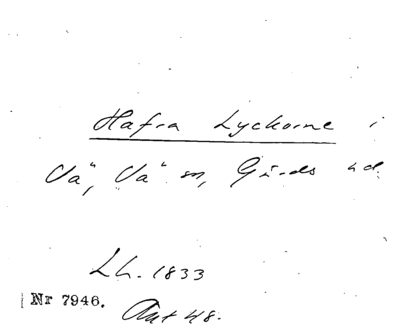 Hafra Lyckorne i
Vä", Vä" sn, Gärds hd.
Lh. 1833
Nr 7946.
Akt 48.